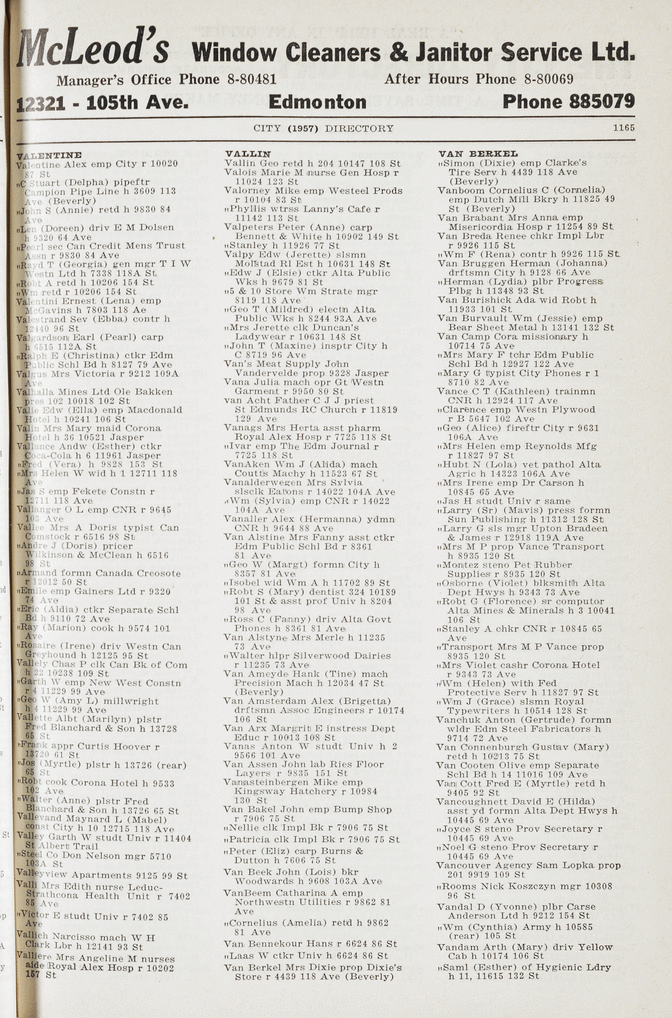 McLeod's Window Cleaners & Janitor Service Ltd.
Manager's Office Phone 8-80481 After Hours Phone 8-80069
12321 - 105th Ave. Edmonton Phone 885079
CITY (1957) DIRECTORY 1165
VALENTINE
Valentine Alex emp City r 10020
87 St
"C Stuart (Delpha) pipeftr
Campion Pipe Line h 3609 113
Ave (Beverly)
"John S (Annie) retd h 9830 84
Ave
"Len (Doreen) driv E M Dolsen
h 9320 64 Ave
"Pearl sec Can Credit Mens Trust
Assn r 9830 84 Ave
"Rayd T (Georgia) gen mgr T I W
Westn Ltd h 7338 118A St
"Robt A retd h 10206 154 St
"Wm retd r 10206 154 St
Valentini Ernest (Lena) emp
McGavins h 7803 118 Ave
Valestrand Sev (Ebba) contr h
12440 96 St
Valgardson Earl (Pearl) carp
h 6515 112A St
"Ralph E (Christina) ctkr Edm
Public Schl Bd h 8127 79 Ave
Valgus Mrs Victoria r 9212 109A
Ave
Valhalla Mines Ltd Ole Bakken
pres 102 10018 102 St
Valie Edw (Ella) emp Macdonald
Hotel h 10241 106 St
Valin Mrs Mary maid Corona
Hotel h 36 10521 Jasper
Vallance Andw (Esther) ctkr
Coca-Cola h 6 11961 Jasper
"Fred (Vera) h 9828 153 St
"Mrs Helen W wid h 1 12711 118
Ave
"Jas S emp Fekete Constn r
12711 118 Ave
Vallanger O L emp CNR r 9645
103 Ave
Vallee Mrs A Doris typist Can
Comstock r 6516 98 St
"Andre J (Doris) pricer
Wilkinson & McClean h 6516
98 St
"Armand formn Canada Creosote
r 12012 50 St
"Emile emp Gainers Ltd r 9320
74 Ave
"Eric (Aldia) ctkr Separate Schl
Bd h 9110 72 Ave
"Ray (Marion) cook h 9574 101
Ave
"Rosaire (Irene) driv Westn Can
Greyhound h 12125 95 St
Vallely Chas P clk Can Bk of Com
h 22 10238 109 St
"Garth W emp New West Constn
r 4 11229 99 Ave
"Geo W (Amy L) millwright
h 4 11229 99 Ave
Vallette Albt (Marilyn) plstr
Fred Blanchard & Son h 13728
65 St
"Frank appr Curtis Hoover r
13720 61 St
"Jos (Myrtle) plstr h 13726 (rear)
65 St
"Robt cook Corona Hotel h 9533
102 Ave
"Walter (Anne) plstr Fred
Blanchard & Son h 13726 65 St
Vallevand Maynard L (Mabel)
const City h 10 12715 118 Ave
Valley Garth W studt Univ r 11404
St Albert Trail
"Steel Co Don Nelson mgr 5710
103A St
Valleyview Apartments 9125 99 St
Valli Mrs Edith nurse Leduc-
Strathcona Health Unit r 7402
85 Ave
"Victor E studt Univ r 7402 85
Ave
Vallich Narcisso mach W H
Clark Lbr h 12141 93 St
Valliere Mrs Angeline M nurses
aide Royal Alex Hosp r 10202
157 St
VALLIN
Vallin Geo retd h 204 10147 108 St
Valois Marie M nurse Gen Hosp r
11024 123 St
Valorney Mike emp Westeel Prods
r 10104 83 St
"Phyllis wtrss Lanny's Cafe r
11142 113 St
Valpeters Peter (Anne) carp
Bennett & White h 10902 149 St
"Stanley h 11926 77 St
Valpy Edw (Jerette) slsmn
Molstad Rl Est h 10631 148 St
"Edw J (Elsie) ctkr Alta Public
Wks h 9679 81 St
"5 & 10 Store Wm Strate mgr
8119 118 Ave
"Geo T (Mildred) electn Alta
Public Wks h 8244 93A Ave
"Mrs Jerette clk Duncan's
Ladywear r 10631 148 St
"John T (Maxine) insptr City h
C 8719 96 Ave
Van's Meat Supply John
Vandervelde prop 9328 Jasper
Vana Julia mach opr Gt Westn
Garment r 9950 80 St
van Acht Father C J J priest
St Edmunds RC Church r 11819
129 Ave
Vanags Mrs Herta asst pharm
Royal Alex Hosp r 7725 118 St
"Ivar emp The Edm Journal r
7725 118 St
VanAken Wm J (Alida) mach
Coutts Machy h 11523 67 St
Vanalderwegen Mrs Sylvia
slsclk Eatons r 14022 104A Ave
"Wm (Sylvia) emp CNR r 14022
104A Ave
Vanaller Alex (Hermana) ydmn
CNR h 9644 88 Ave
Van Alstine Mrs Fanny asst ctkr
Edm Public Schl Bd r 8361
81 Ave
"Geo W (Margt) formn City h
8357 81 Ave
"Isobel wid Wm A h 11702 89 St
"Robt S (Mary) dentist 324 10189
101 St & asst prof Univ h 8204
98 Ave
"Ross C (Fanny) driv Alta Govt
Phones h 8361 81 Ave
Van Alstyne Mrs Merle h 11235
73 Ave
"Walter hlpr Silverwood Dairies
r 11235 73 Ave
Van Ameyde Hank (Tine) mach
Precision Mach h 12034 47 St
(Beverly)
Van Amsterdam Alex (Brigetta)
drftsmn Assoc Engineers r 10174
106 St
Van Arx Margrit E instress Dept
Educ r 10013 108 St
Vanas Anton W studt Univ h 2
9566 101 Ave
Van Assen John lab Ries Floor
Layers r 9835 151 St
Vanasteinbergen Mike emp
Kingsway Hatchery r 10984
130 St
Van Bakel John emp Bump Shop
r 7906 75 St
"Nellie clk Impl Bk r 7906 75 St
"Patricia clk Impl Bk r 7906 75 St
"Peter (Eliz) carp Burns &
Dutton h 7606 75 St
Van Beek John (Lois) bkr
Woodwards h 9608 103A Ave
VanBeem Catharina A emp
Northwestn Utilities r 9862 81
Ave
"Cornelius (Amelia) retd h 9862
81 Ave
Van Bennekour Hans r 6624 86 St
"Laas W ctkr Univ h 6624 86 St
Van Berkel Mrs Dixie prop Dixie's
Store r 4439 118 Ave (Beverly)
VAN BERKEL
"Simon (Dixie) emp Clarke's
Tire Serv h 4439 118 Ave
(Beverly)
Vanboom Cornelius C (Cornelia)
emp Dutch Mill Bkry h 11825 49
St (Beverly)
Van Brabant Mrs Anna emp
Misericordia Hosp r 11254 89 St
Van Breda Renee chkr Impl Lbr
r 9926 115 St
"Wm F (Rena) contr h 9926 115 St
Van Bruggen Herman (Johanna)
drftsmn City h 9128 66 Ave
"Herman (Lydia) plbr Progress
Plbg h 11348 93 St
Van Burishick Ada wid Robt h
11933 101 St
Van Burvault Wm (Jessie) emp
Bear Sheet Metal h 13141 132 St
Van Camp Cora missionary h
10714 75 Ave
"Mrs Mary F tchr Edm Public
Schl Bd h 12927 122 Ave
"Mary G typist City Phones r 1
8710 82 Ave
Vance C T (Kathleen) trainmn
CNR h 12924 117 Ave
"Clarence emp Westn Plywood
r B 5647 102 Ave
"Geo (Alice) fireftr City r 9631
106A Ave
"Mrs Helen emp Reynolds Mfg
r 11827 97 St
"Hubt N (Lola) vet pathol Alta
Agric h 14323 106A Ave
"Mrs Irene emp Dr Carson h
10845 65 Ave
"Jas H studt Univ r same
"Larry (Sr) (Mavis) press formn
Sun Publishing h 11312 128 St
"Larry G sls mgr Upton Bradeen
& James r 12918 119A Ave
"Mrs M P prop Vance Transport
h 8935 120 St
"Montez steno Pet Rubber
Supplies r 8935 120 St
"Osborne (Violet) blksmith Alta
Dept Hwys h 9343 73 Ave
"Robt G (Florence) sr computor
Alta Mines & Minerals h 3 10041
106 St
"Stanley A chkr CNR r 10845 65
Ave
"Transport Mrs M P Vance prop
8935 120 St
"Mrs Violet cashr Corona Hotel
r 9343 73 Ave
"Wm (Helen) with Fed
Protective Serv h 11827 97 St
"Wm J (Grace) slsmn Royal
Typewriters h 10514 128 St
Vanchuk Anton (Gertrude) formn
wldr Edm Steel Fabricators h
9714 72 Ave
Van Connenburgh Gustav (Mary)
retd h 10213 75 St
Van Cooten Olive emp Separate
Schl Bd h 14 11016 109 Ave
Van Cott Fred E (Myrtle) retd h
9405 92 St
Vancoughnett David E (Hilda)
asst yd formn Alta Dept Hwys h
10445 69 Ave
"Joyce S steno Prov Secretary r
10445 69 Ave
"Noel G steno Prov Secretary r
10445 69 Ave
Vancouver Agency Sam Lopka prop
201 9919 109 St
"Rooms Nick Koszczyn mgr 10308
96 St
Vandal D (Yvonne) plbr Carse
Anderson Ltd h 9212 154 St
"Wm (Cynthia) Army h 10585
(rear) 105 St
Vandam Arth (Mary) driv Yellow
Cab h 10174 106 St
"Saml (Esther) of Hygienic Ldry
h 11, 11615 132 St